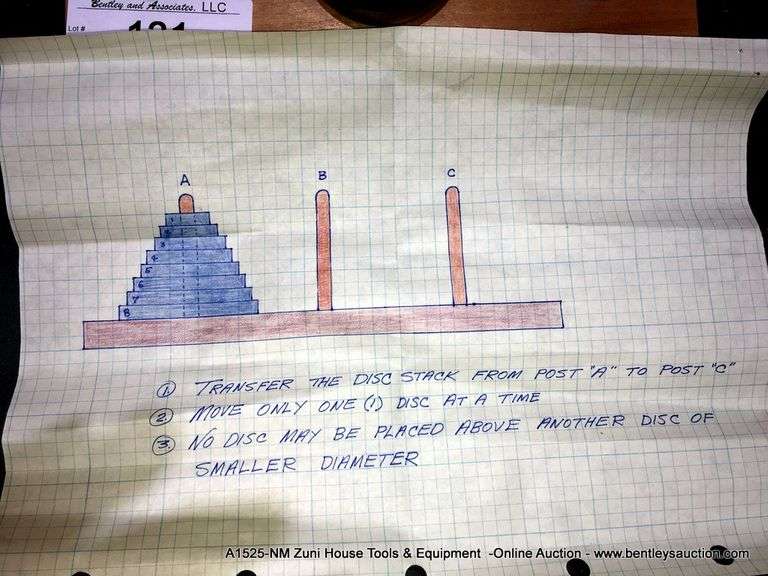 Bentley and Associates, LLC
Lot #
A B C
1
2
3
4
5
6
7
8
① TRANSFER THE DISC STACK FROM POST "A" TO POST "C"
② MOVE ONLY ONE (1) DISC AT A TIME
③ NO DISC MAY BE PLACED ABOVE ANOTHER DISC OF
SMALLER DIAMETER
A1525-NM Zuni House Tools & Equipment -Online Auction - www.bentleysauction.com